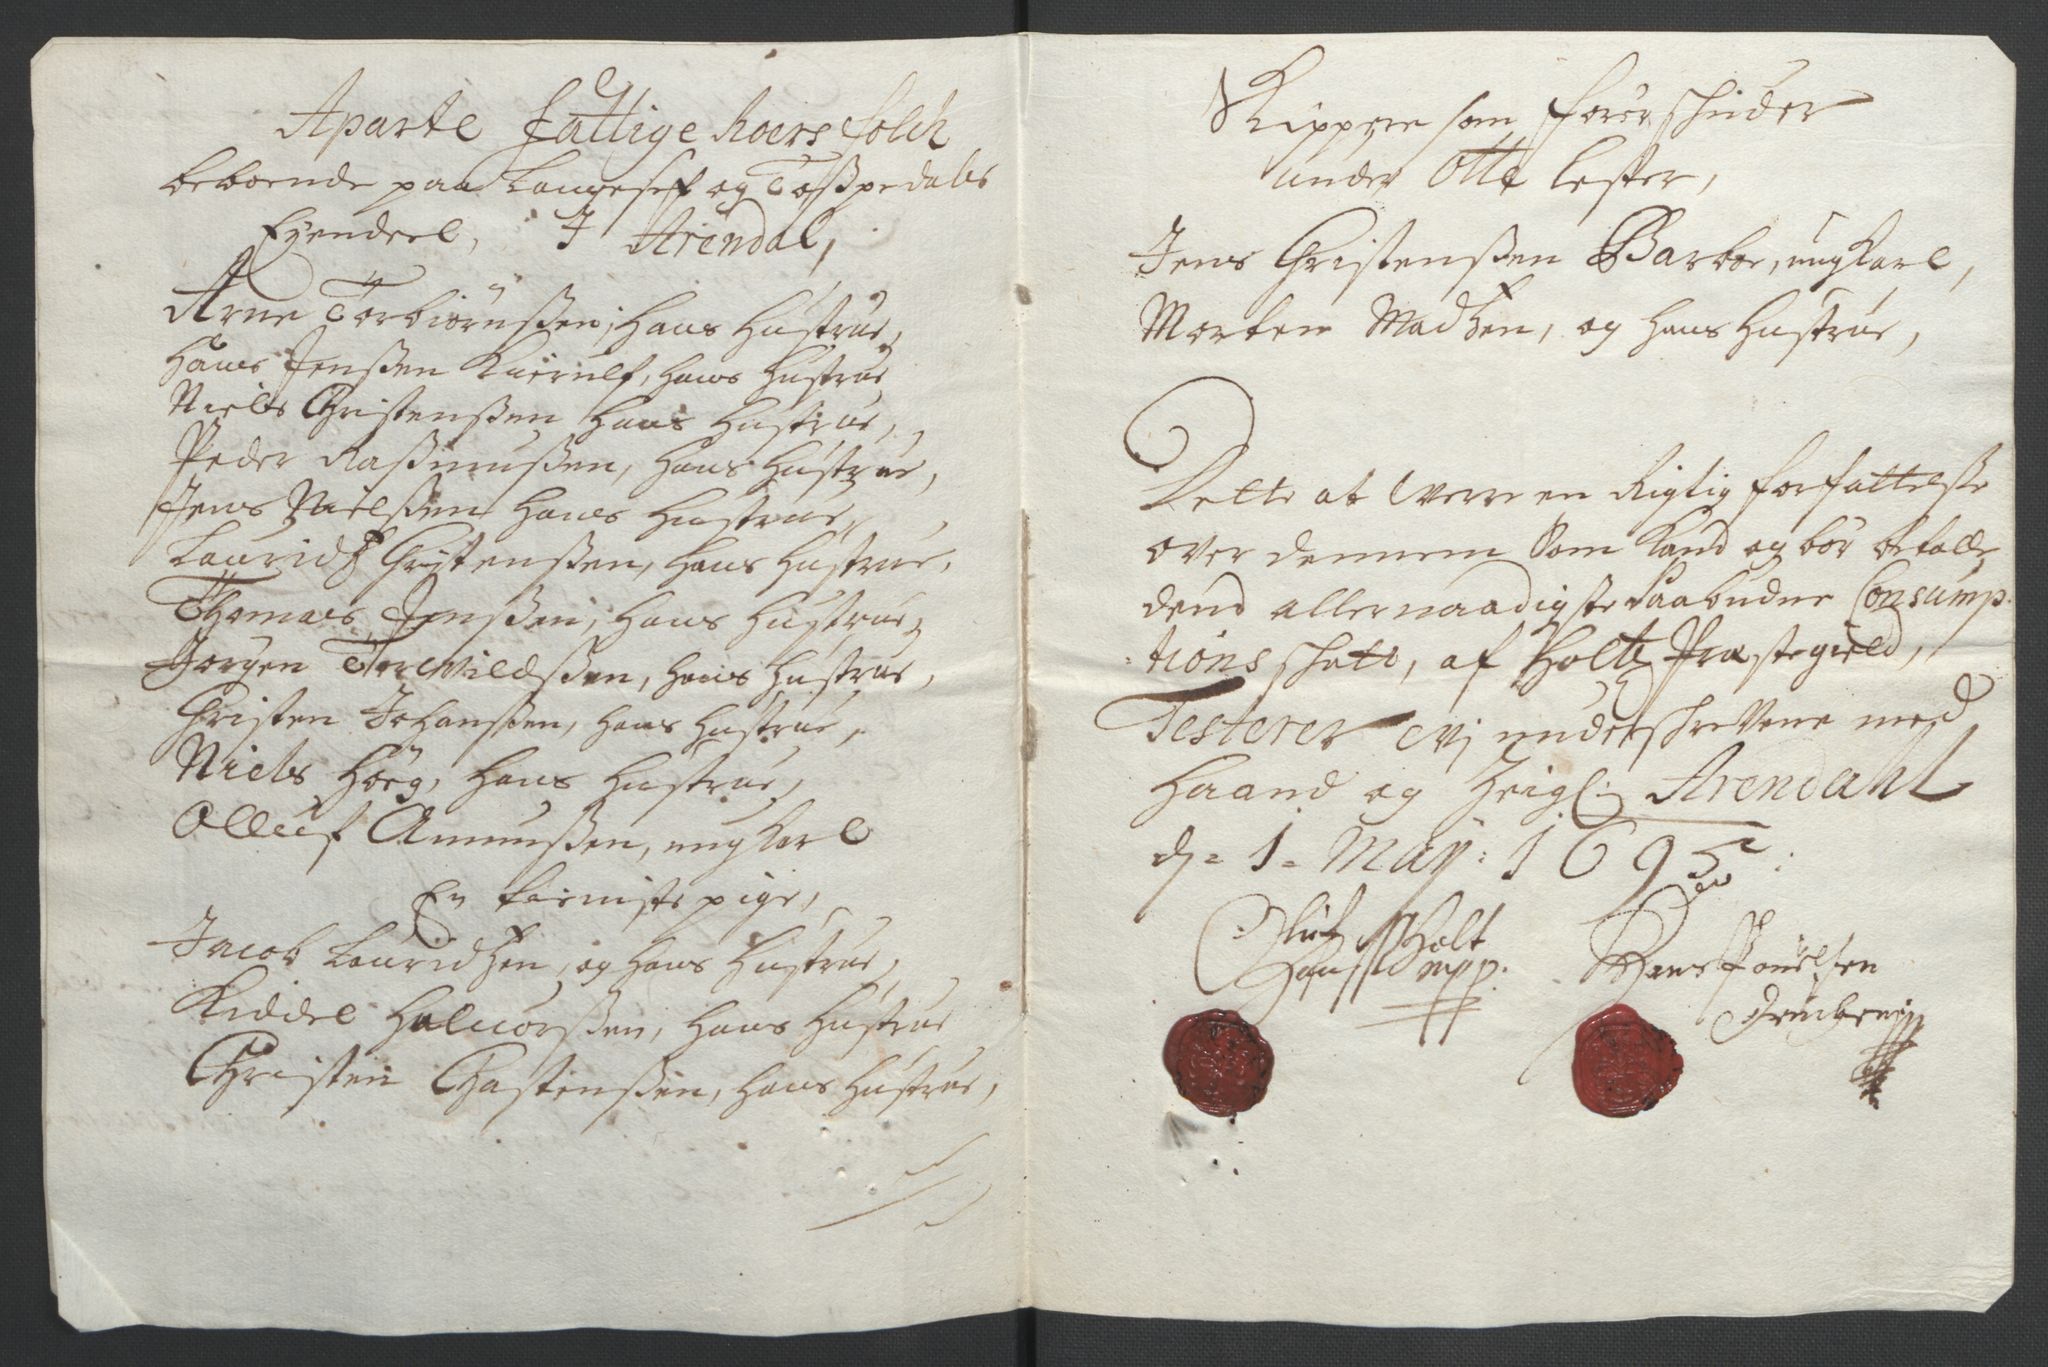 Aparte fattige Roers folck
beboende paa Langesef og Tosspedals
Eÿendeel, J Arendal,
Arne Torbiörnssen, hans hustrue,
Hans Jenssen Kierulf, hans hustrue
Niels Christenssen hans hustrue,
Peder Rassmussen, hans hustrue,
Jens Nielssen hans hustrue,
Lauridtz Christenssen, hans hustrue,
Thomas Jenssen, hans hustrue,
Jorgen Torevildssen, hans hustrue,
Christen Johanssen, hans hustrue,
Niels Höeg, hans hustrue,
Olluf Amunssen, ung Karl
En tieniste pige,
Jacob Lauridtzen, og hans hustrue,
Kiddel Haluorssen, hans hustrue
Christen Chastenssen, hans hustrue,
Skippere som förer schuder
under otte lester,
Jens Christenssen Barboe, ung Karl,
Morten Madtzen, og hans hustrue,
Dette at were en Rigtig forfattelsse
over dennem som Kand og bör betalle
dend allernaadigste Paabudne Consump-
tions schatt, af Holte Præstegield,
Testerer wj underschrevene med
Haand og Zeigl: Arendahl
dn 1. Maÿ: 1695:
Oluf Hanss Holt
mpp.
Hans Pouelsen